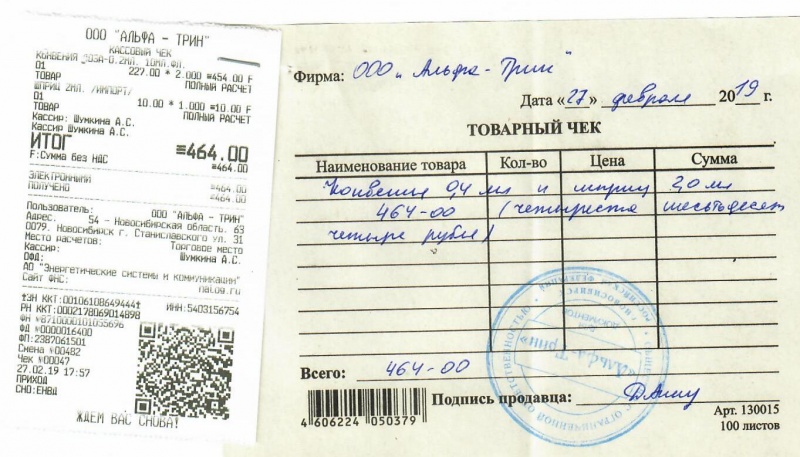 ООО "АЛЬФА - ТРИН"
КАССОВЫЙ ЧЕК
КОНВЕНИЯ ДОЗА-0.2МЛ. 10МЛ.ФЛ.
227.00 * 2.000 ≡454.00 F
01
ТОВАР ПОЛНЫЙ РАСЧЕТ
ШПРИЦ 2МЛ. /ИМПОРТ/
10.00 * 1.000 ≡10.00 F
01
ТОВАР ПОЛНЫЙ РАСЧЕТ
Кассир: Шумкина А.С.
Кассир Шумкина А.С.
ИТОГ ≡464.00
F:Сумма без НДС ≡464.00
ЭЛЕКТРОННЫМИ ≡464.00
ПОЛУЧЕНО ≡464.00
Пользователь: ООО "АЛЬФА - ТРИН"
Адрес: 54 - Новосибирская область, 63
0079, Новосибирск г. Станиславского ул. 31
Место расчетов: Торговое место
Кассир: Шумкина А.С.
ОФД:
АО "Энергетические системы и коммуникации"
Сайт ФНС: nalog.ru
ЗН ККТ:00106108649444
РН ККТ:0002178069014898 ИНН:5403156754
ФН №8710000101035696
ФД №0000016400
ФП:2387061501
Смена №00482
Чек №00047
27.02.19 17:57
ПРИХОД
СНО:ЕНВД
ЖДЕМ ВАС СНОВА!
Фирма: ООО „Альфа-Трин"
Дата «27» февраля 2019 г.
ТОВАРНЫЙ ЧЕК
Наименование товара Кол-во Цена Сумма
Конвения 0,4 мл и шприц 2,0 мл
464-00 (четыреста шестьдесят
четыре рубля)
Всего: 464-00
Подпись продавца:
4 606224 050379
Арт. 130015
100 листов
«Альфа-Трин»